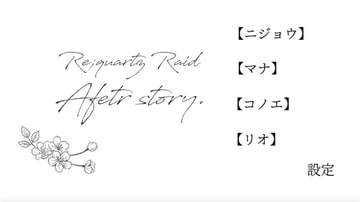 Re;quartz Raid
Afetr story.
【ニジョウ】
【マナ】
【コノエ】
【リオ】
設定